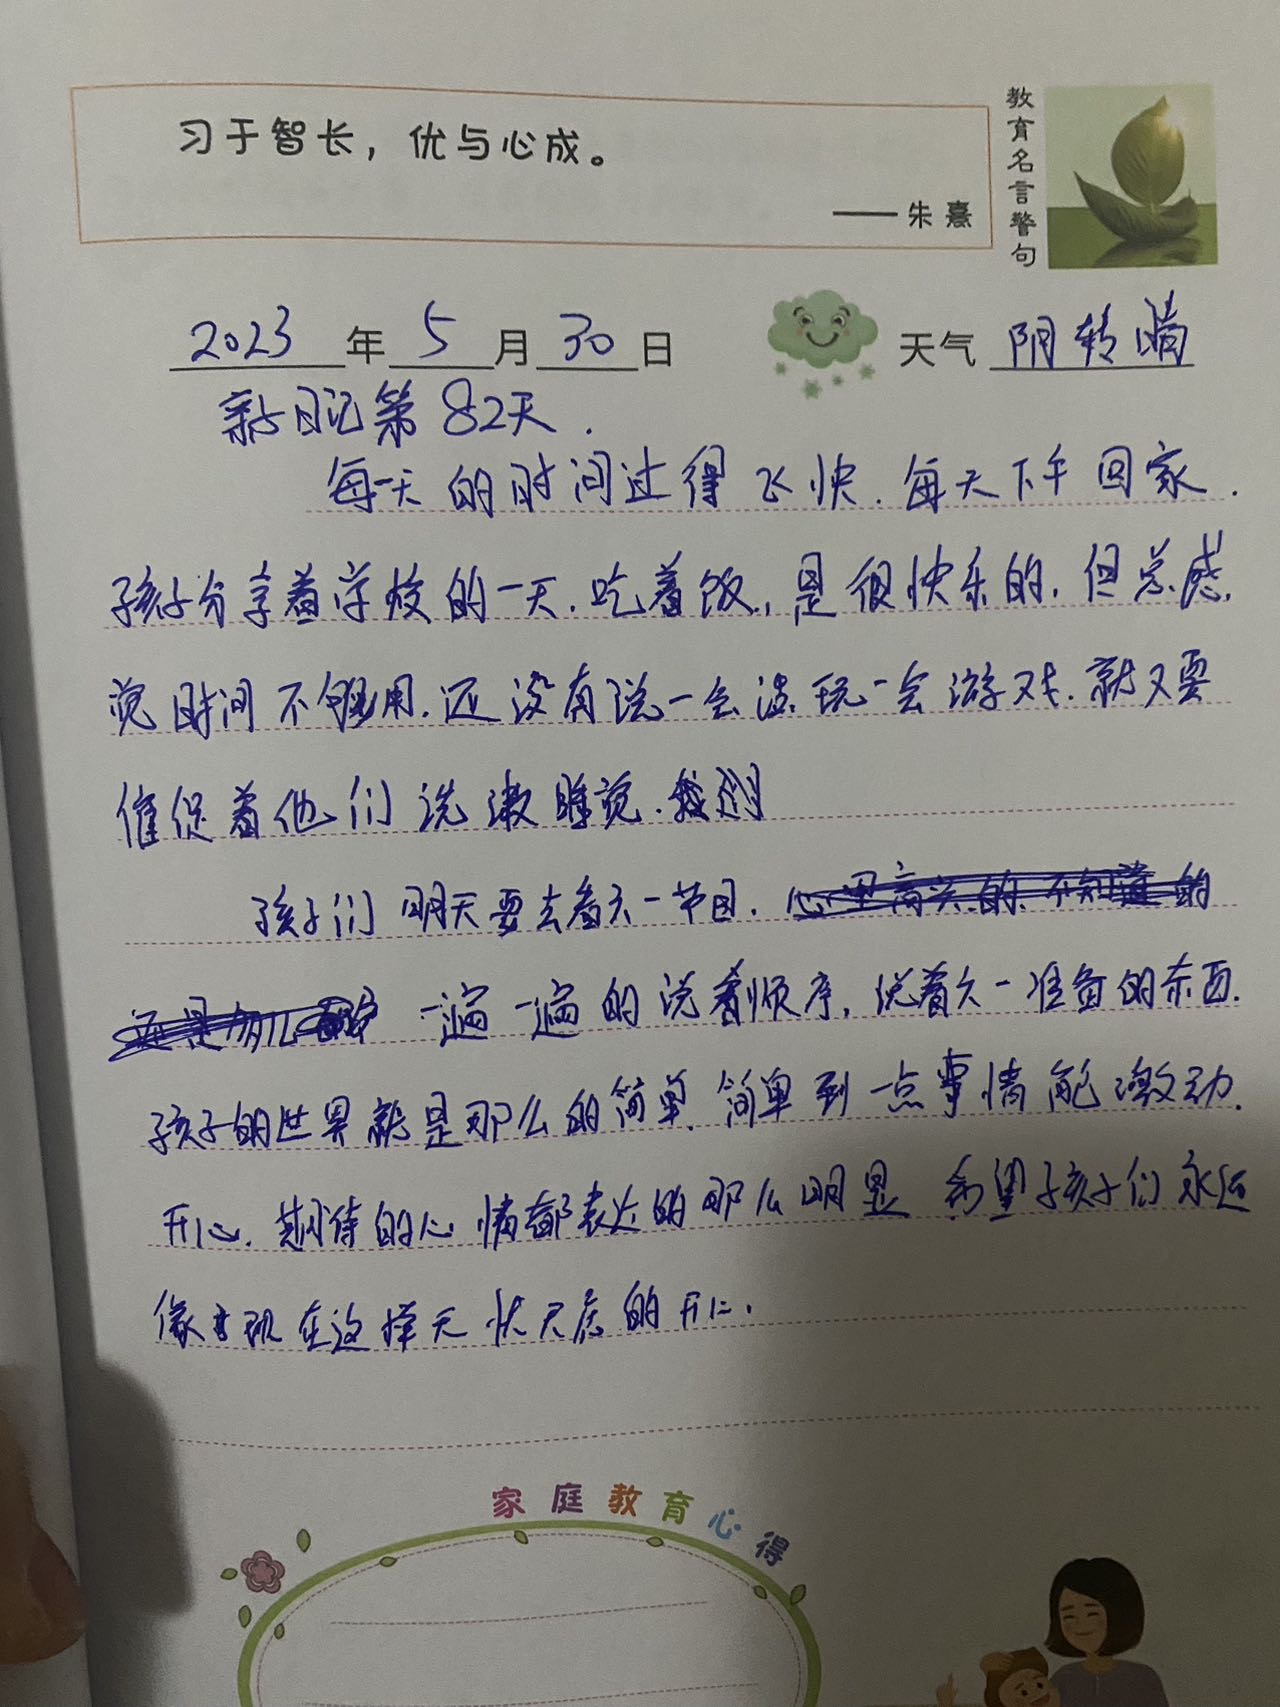 习于智长，优与心成。
——朱熹
教育名言警句
2023年5月30日 天气 阴转晴
亲子日记第82天.
每一天的时间过得飞快.每天下午回家.
孩子分享着学校的一天.吃着饭.是很快乐的.但总感.
觉时间不够用.还没有说一会话玩一会游戏.就又要
催促着他们洗漱睡觉.
孩子们明天要去看六一节目.
一遍一遍的说着顺序,说着六一准备的东西.
孩子的世界就是那么的简单.简单到一点事情能激动.
开心.期待的心情都表达的那么明显 希望孩子们永远
像现在这样无忧无虑的开心.
家庭教育心得